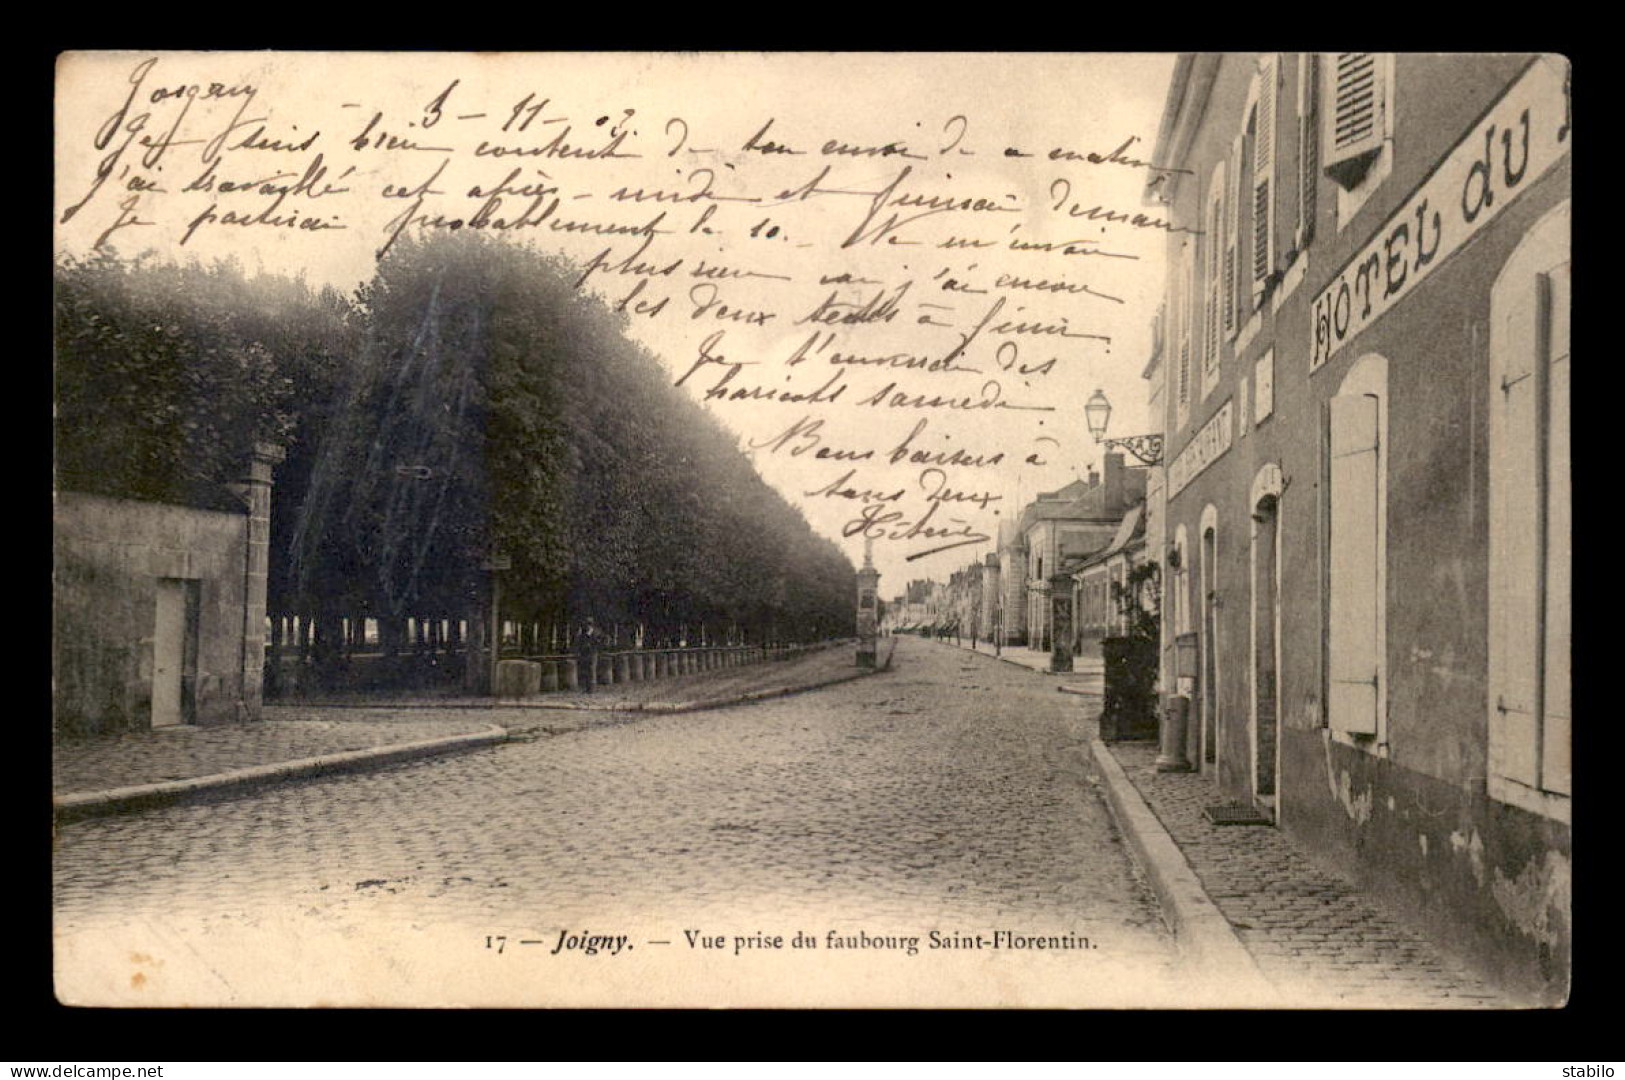 Joigny - 5 - 11 - 03
Je suis bien content de ton envoi de ce matin
J'ai travaillé cet après-midi et finirai demain
Je partirai probablement le 10. - Ne m'envoie
plus rien car j'ai encore
les deux à finir
Je t'enverrai des
haricots samedi
Bons baisers à
tous deux.
HÔTEL du
17 — Joigny. — Vue prise du faubourg Saint-Florentin.
delcampe.net
stabilo